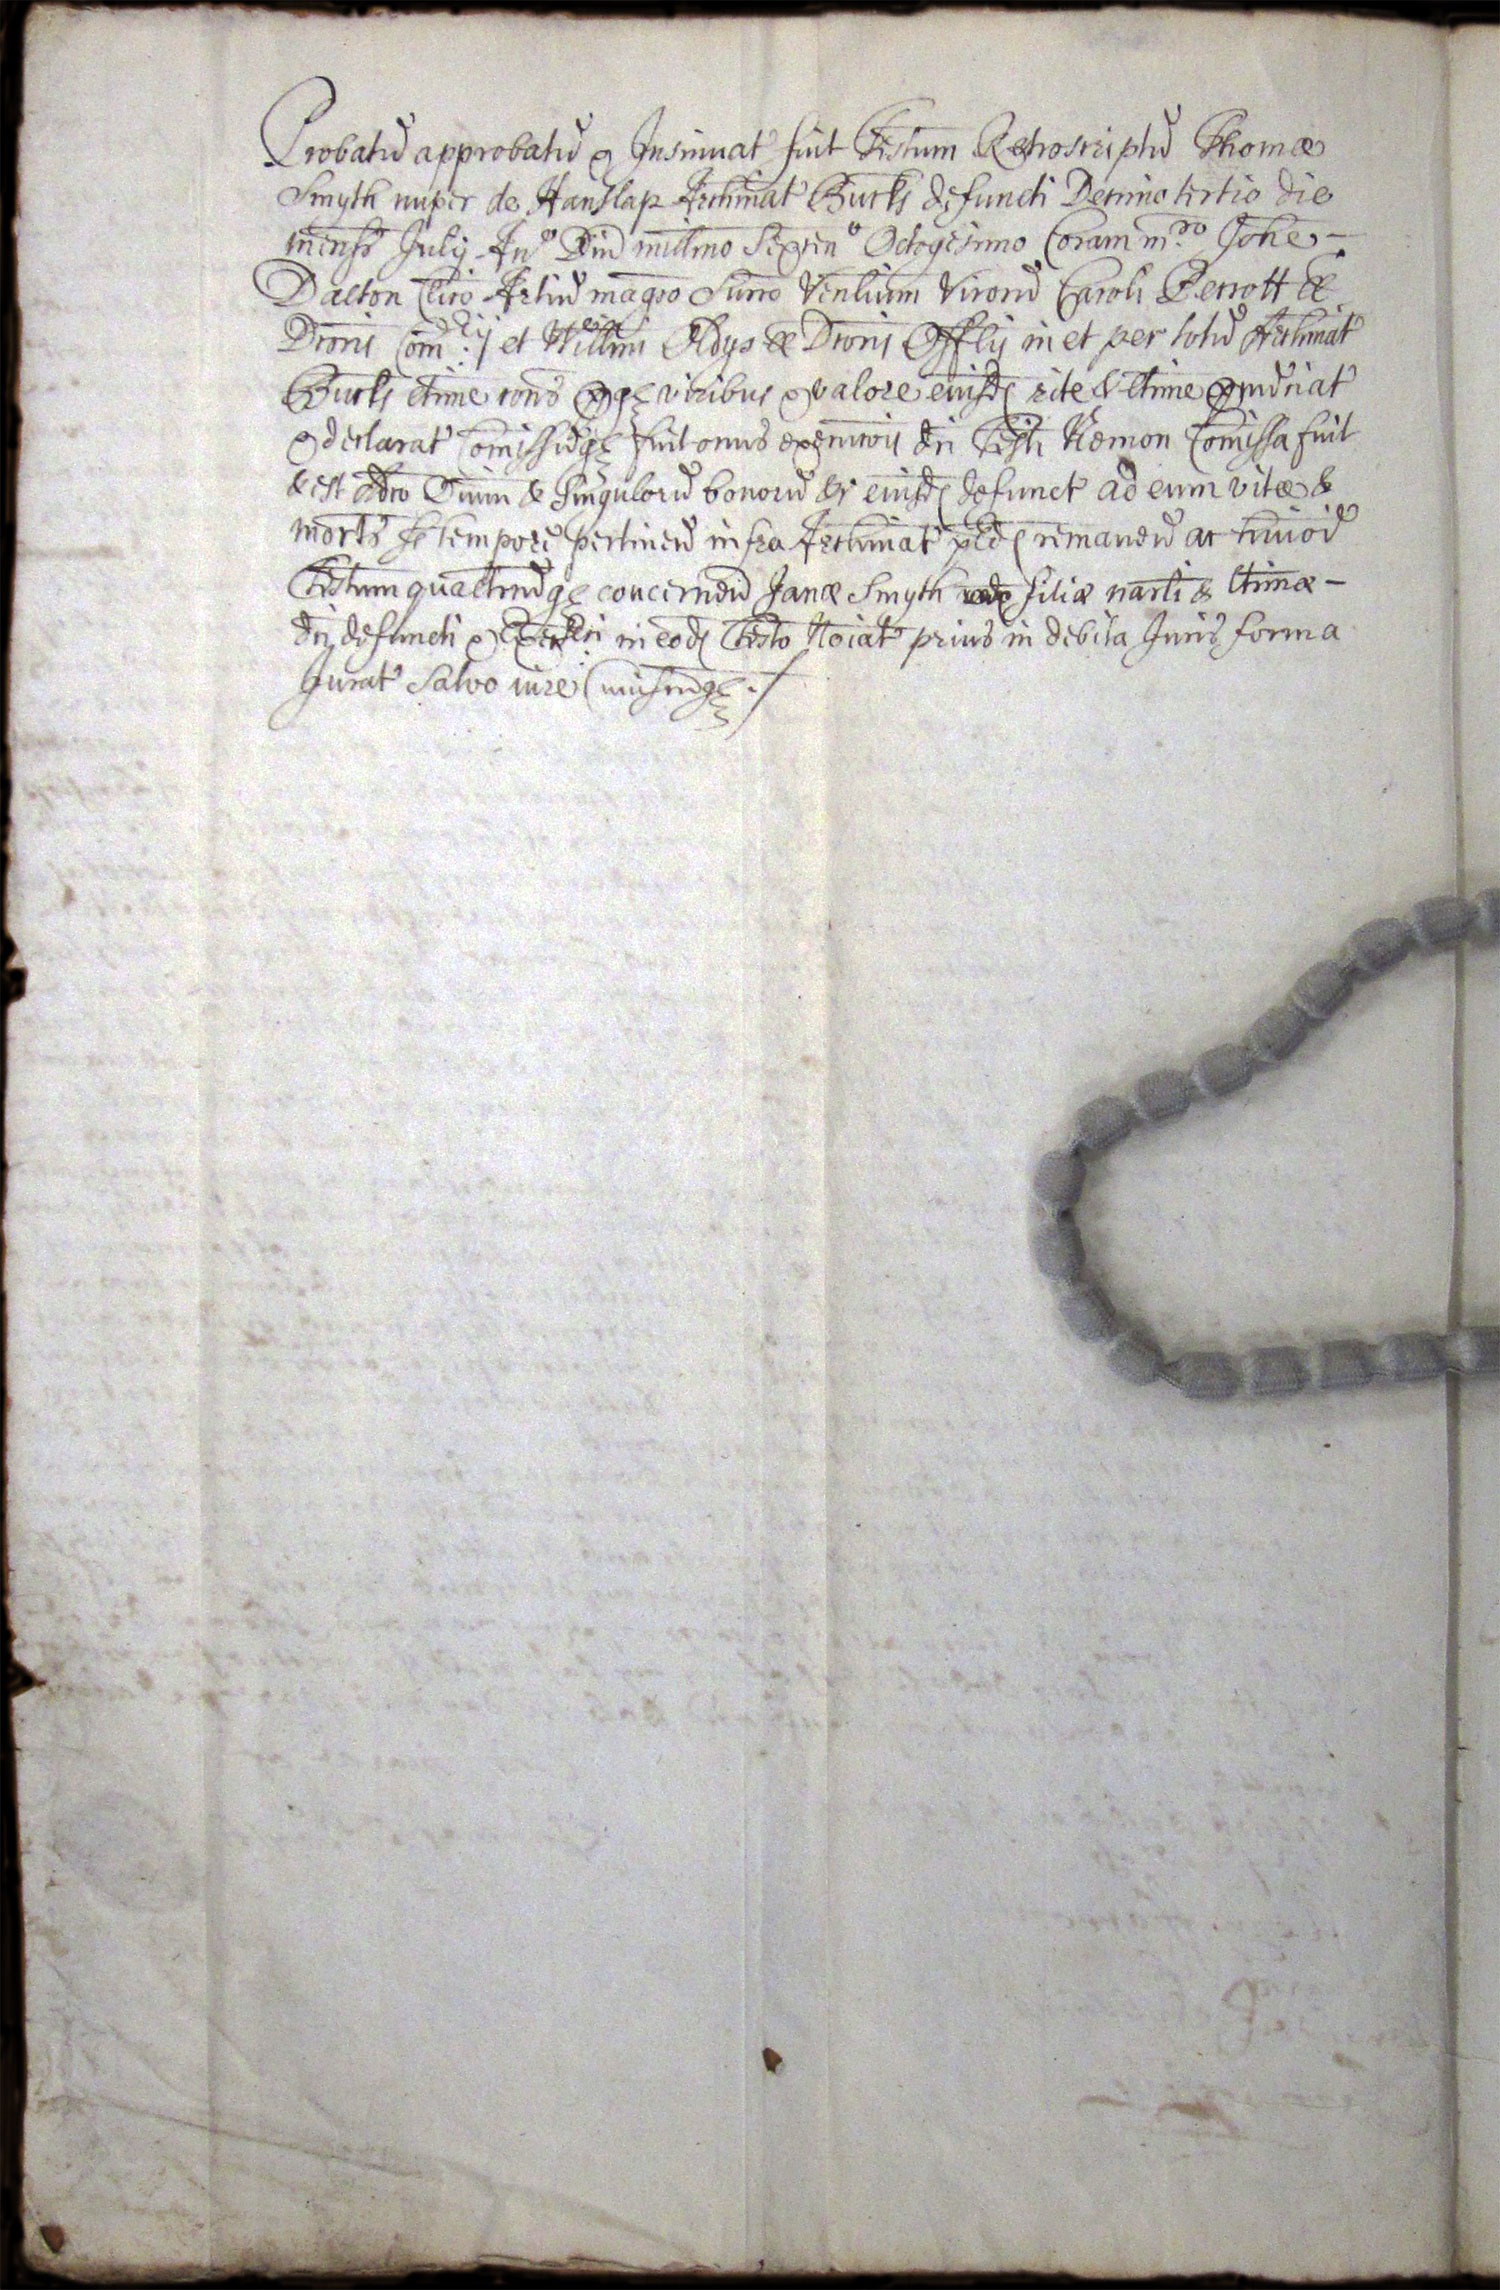 Probatū approbatū & Insinuat' fuit Testum Retroscriptū Thomæ
Smyth nuper de Hanslap Archinat' Bucks defuncti Decimo tertio die
mensis Julij An° Dni millmo Sexcen° Octogesimo Coram mro Johe –
Dalton Clico Artiū magro Surro Venlium Virorū Caroli Perrott &
Dcoris Com:rij et Willmi Oldys & Dcoris Offlis in et per totū Archinat'
Bucks ltime cons deq viribus & valore eiusd rite & ltime
& declarat' Comissūq fuit onus exequucois dci Testi Necnon Comissa fuit
& est Adco Oium & Singulorū bonorū &c eiusd defunct' ad eum vitæ &
mortis tempore pertineñ infra Archinat' pred remaneñ ac
Testum concerneñ Janæ Smyth filiæ narli & ltimæ –
dci defuncti & in eod Testo Noiat' prius in debita Juris forma
Jurat' Salvo iure Cuiuscunq ./